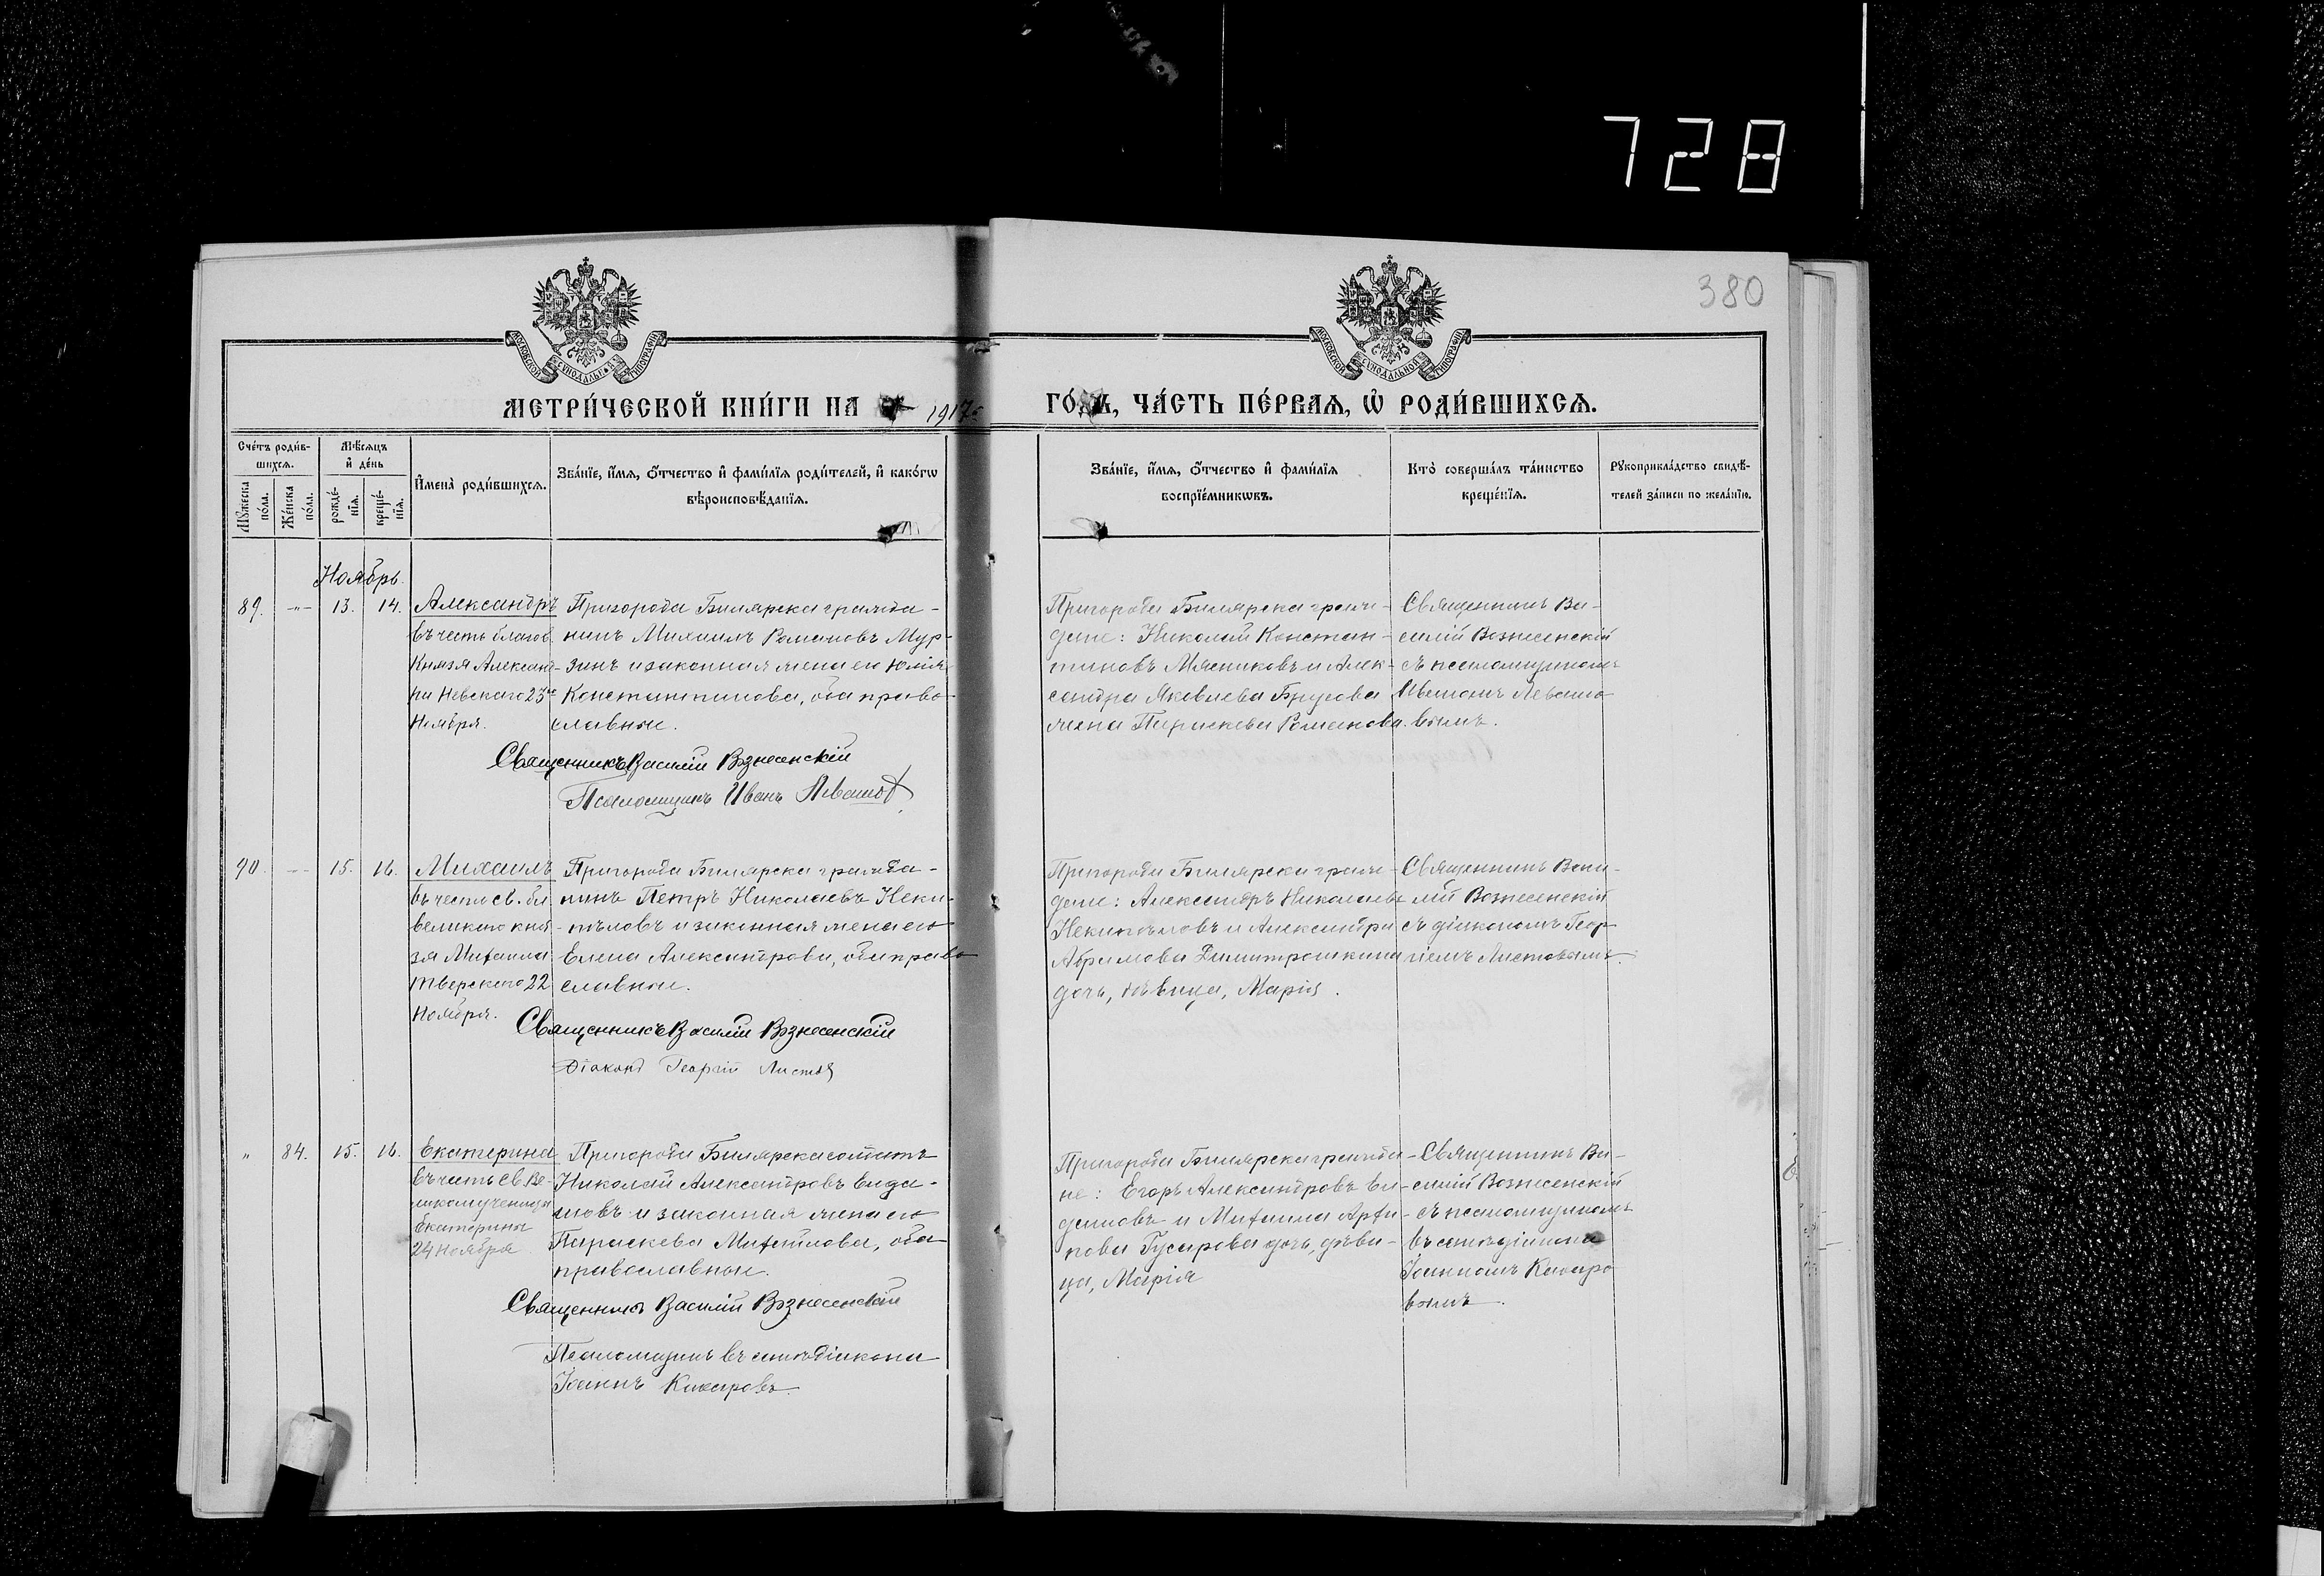 728
380
МОСКОВСКОЙ СѴНОДАЛЬНОЙ ТИПОГРАФІИ
МОСКОВСКОЙ СѴНОДАЛЬНОЙ ТИПОГРАФІИ
МЕТРИ́ЧЕСКОЙ КНИ́ГИ НА 1917
ГО́ДЪ, ЧА́СТЬ ПЕ́РВАЯ, Ѡ҆ РОДИ́ВШИХСЯ.
Сче́тъ роди́в-
шихся.
Му́жеска по́ла.
Же́нска по́ла.
Мѣ́сяцъ
и҆ де́нь
рожде́-
нїя.
креще́-
нїя.
И҆мена̀ роди́вшихся.
Зва́нїе, и҆́мя, ѻ҆́тчество и҆ фами́лїя роди́телей, и҆ како́гѡ
вѣроисповѣ́данїя.
Зва́нїе, и҆́мя, ѻ҆́тчество и҆ фами́лїя
воспрїе́мникѡвъ.
Кто̀ соверша́лъ та́инство
креще́нїя.
Рꙋкоприкла́дство свидѣ́-
телей за́писи по жела́нїю.
Ноябрь.
89. -"- 13. 14.
Александръ
въ честь благов.
Князя Александ-
ра Невскаго 23го
Ноября.
Пригорода Билярска гражда-
нинъ Михаилъ Романовъ Мур-
зинъ и законная жена его Юлія
Константинова, оба право-
славные.
Священникъ Василій Вознесенскій
Псаломщикъ Иванъ Левашов
Пригорода Билярска граж-
дане: Николай Констан-
тиновъ Мясниковъ и Алек-
сандра Яковлева Брусова
жена Параскева Романова.
Священникъ Ва-
силій Вознесенскій
съ псаломщикомъ
Иваномъ Левашо-
вымъ.
90. -- 15. 16.
Михаилъ
въ честь св. бл.
великаго кня-
зя Михаила
Тверского 22
Ноября.
Пригорода Билярска гражда-
нинъ Петръ Николаевъ Неки-
тѣловъ и законная жена его
Елена Александрова, оба право
славные.
Священникъ Василій Вознесенскій
Діаконъ Георгій Листов
Пригорода Билярска граж-
дане: Александръ Николаевъ
и Александра
Абрамова Димитрошкина
дочь, дѣвица, Марія.
Священникъ Васи-
лій Вознесенскій
съ діакономъ Геор-
гіемъ Листовымъ.
" 84. 15. 16.
Екатерина
въ честь св. Ве-
ликомученицы
Екатерины
24 Ноября
Пригорода Билярска солдатъ
Николай Александровъ Вида-
новъ и законная жена его
Параскева Михаилова, оба
православные.
Священникъ Василій Вознесенскій
Псаломщикъ въ санѣ діакона
Іоаннъ
Пригорода Билярска гражда-
не: Егоръ Александровъ Ви-
и
Гусарова дочь, дѣви-
ца, Марія
Священникъ Ва-
силій Вознесенскій
съ псаломщикомъ
въ санѣ діакона
Іоанномъ
вымъ.